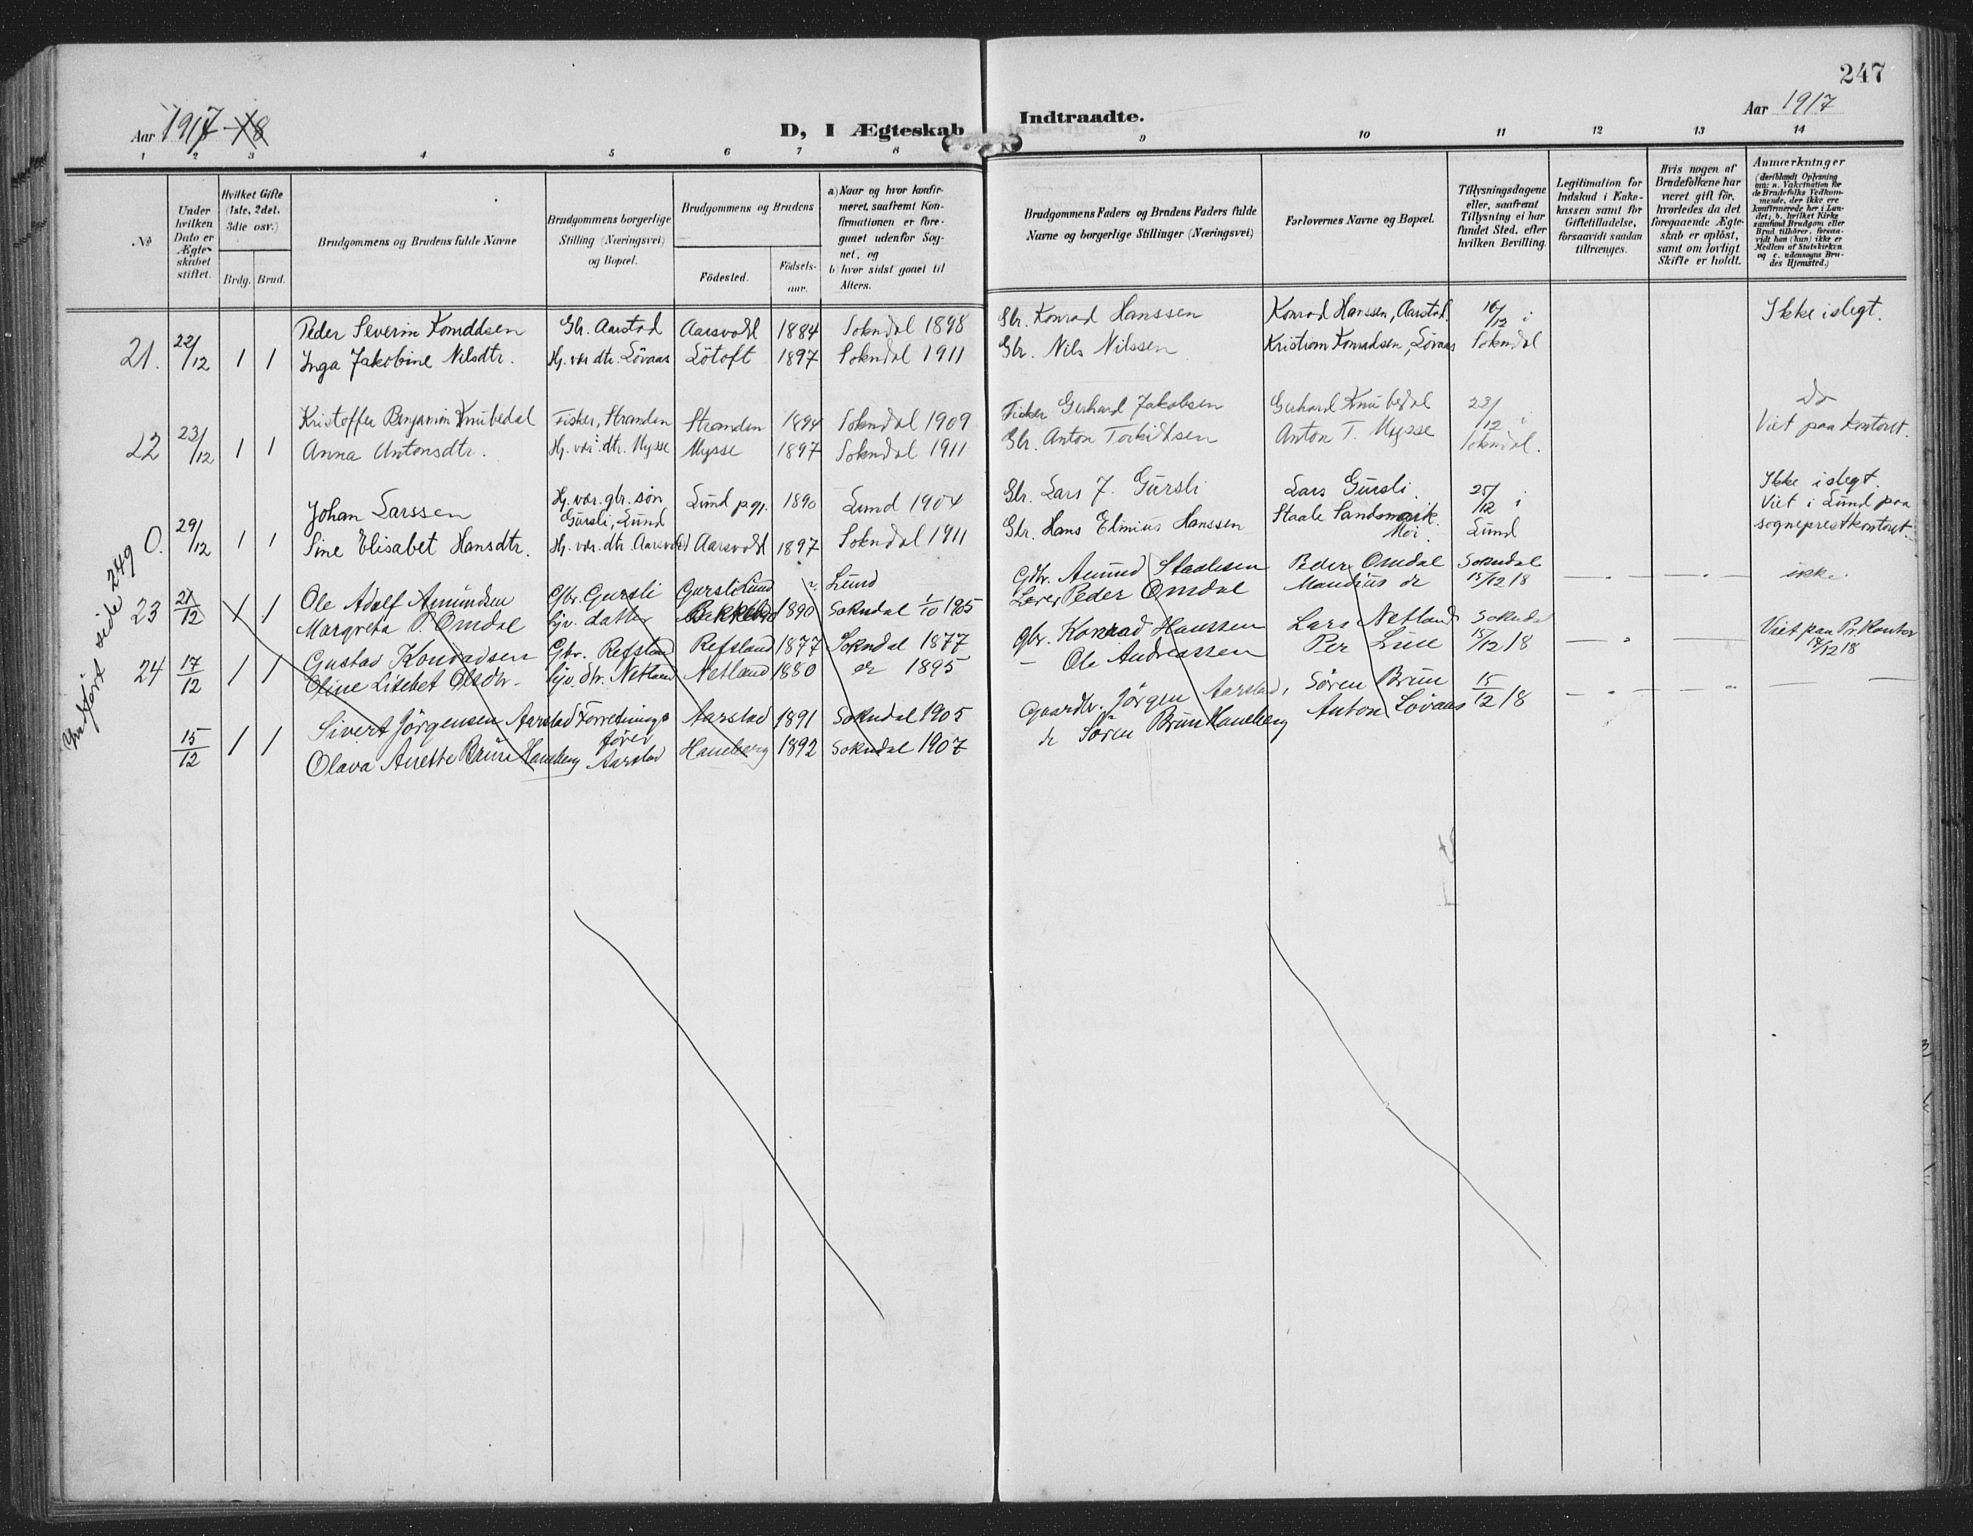 247
Aar 1917-18
D, I Ægteskab
Indtraadte.
Aar 1917
1 2 3 4 5 6 7 8 9 10 11 12 13 14
No
Under hvilken Dato er Ægteskabet stiftet.
Hvilket Gifte (1ste, 2det, 3die osv.)
Brdg. Brud.
Brudgommens og Brudens fulde Navne
Brudgommens borgerlige Stilling (Næringsvei) og Bopæl.
Brudgommens og Brudens
Födested.
Födselsaar.
a) Naar og hvor konfirmeret, saafremt Konfirmationen er foregaaet udenfor Sognet, og
b) hvor sidst gaaet til Alters.
Brudgommens Faders og Brudens Faders fulde Navne og borgerlige Stillinger (Næringsvei)
Forlovernes Navne og Bopæl.
Tillysningsdagene eller, saafremt Tillysning ei har fundet Sted, efter hvilken Bevilling.
Legitimation for Indskud i Enkekassen samt for Giftetilladelse, forsaavidt saadan tiltrænges.
Hvis nogen af Brudefolkene har været gift før, hvorledes da det foregaaende Ægteskab er oplöst, samt om lovligt Skifte er holdt.
Anmærkninger
(deriblandt Oplysning om: a. Vakcination for de Brudefolks Vedkommende, der ikke ere konfirmerede her i Landet; b. hvilket Kirkesamfund Brudgom eller Brud tilhörer, forsaavidt han (hun) ikke er Medlem af Statskirken og c. udensogns Brudes Hjemsted.)
Peder Severin Konradsen Gbr. Aarstad Aarsvold 1884 Sokndal 1898 Gbr. Konrad Hanssen Konrad Hanssen, Aarstad. 16/12 i Ikke i slegt.
21. 22/12 1 1 Inga Jakobine Nilsdtr. Hj. vær. dtr. Løvaas Løtoft 1897 Sokndal 1911 Gbr. Nils Nilssen Kristian Konradsen, Løvaas Sokndal
Kristoffer Benjamin Knubedal Fisker, Stranden Stranden 1894 Sokndal 1909 Fisker Gerhard Jakobsen Gerhard Knubedal 23/12 i Do
22 23/12 1 1 Anna Antonsdtr. Hj. vær. dtr. Mysse Mysse 1897 Sokndal 1911 Gbr. Anton Torkildsen Anton T. Mysse Sokndal. Viet paa kontoret.
Johan Larssen Hj. vær. gbr. søn Gursli, Lund Lund pgj. 1890 Lund 1904 Gbr. Lars J. Gursli Lars Gursli. 25/12 i Ikke i slegt.
0. 29/12 1 1 Sine Elisabet Hansdtr. Hj. vær. dtr. Aarsvold Aarsvold 1897 Sokndal 1911 Gbr. Hans Elinius Hanssen Staale Sandsmark. Moi. Lund Viet i Lund paa sogneprestkontoret.
Indført side 249
Ole Adolf Amundsen Gbr. Gursli Gursli Lund Lund Gbr. Amund Staalesen Peder Omdal Sokndal ikke.
23 21/12 1 1 Margreta P. Omdal hjv. datter 1890 Sokndal 1/10 1905 Peder Omdal Mandius do 15/12 18
Gustav Konradsen Gbr. Refsland Refsland 1877 Sokndal 1877 Gbr. Konrad Hanssen Lars Netland Sokndal Viet paa Pr. Kontor
24 17/12 1 1 Oline Lisebet Olsdtr. hjv. dtr. Netland Netland 1880 do 1895 - Ole Andreassen Per Line 15/12 18
Sivert Jörgensen Aarstad Forretningsfører Aarstad 1891 Sokndal 1905 Gaardbr. Jörgen Aarstad, Sören Bruu 15/12 18
15/12 1 1 Olava Anette Bruu Haneberg Aarstad Haneberg 1892 Sokndal 1907 do Sören Bruu Haneberg Anton Løvaas